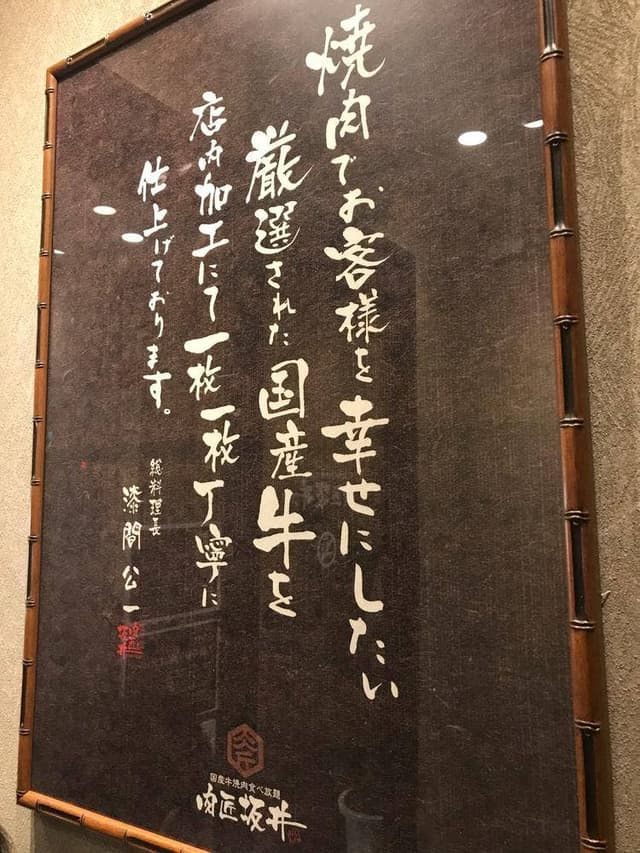 焼肉でお客様を幸せにしたい
厳選された国産牛を
店内加工にて一枚一枚丁寧に
仕上げております。
総料理長
漆間公一
国産牛焼肉食べ放題
肉匠坂井